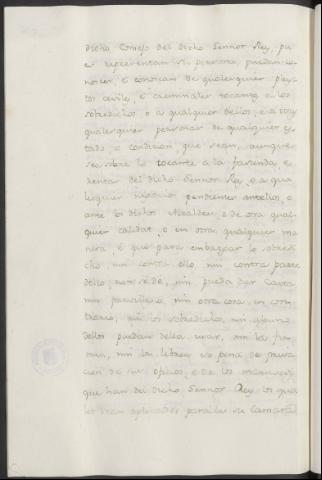 dicho Consejo del dicho Sennor Rey, pu
es representan su persona, puedan co
noscer, é conoscan de qualesquier pley-
tos ceviles, é creminales tocantes a los
sobredichos, o a qualquier dellos, e a otras
qualesquier personas de qualquier es
tado, o condicion, que sean, aunque
sea sobre lo tocante a la fasienda, e
rentas del dicho Sennor Rey, o a qua
lesquier negocios pendientes antellos, o
ante los dichos Alcaldes, o de otra qual
quier calidat, o en otra qualquier ma
nera, é que para embargar lo sobredi
cho, nin contra ello, nin contra parte
dello, non se dé, nin pueda dar Carta
nin previllejo, nin otra cosa en con
trario, nin los sobredichos, nin alguno
dellos puedan della usar, nin les
nin los libren so pena de priva
cion de sus oficios, e de los maravedis
que han del dicho Sennor Rey los qua
les sean aplicados para la su Camara